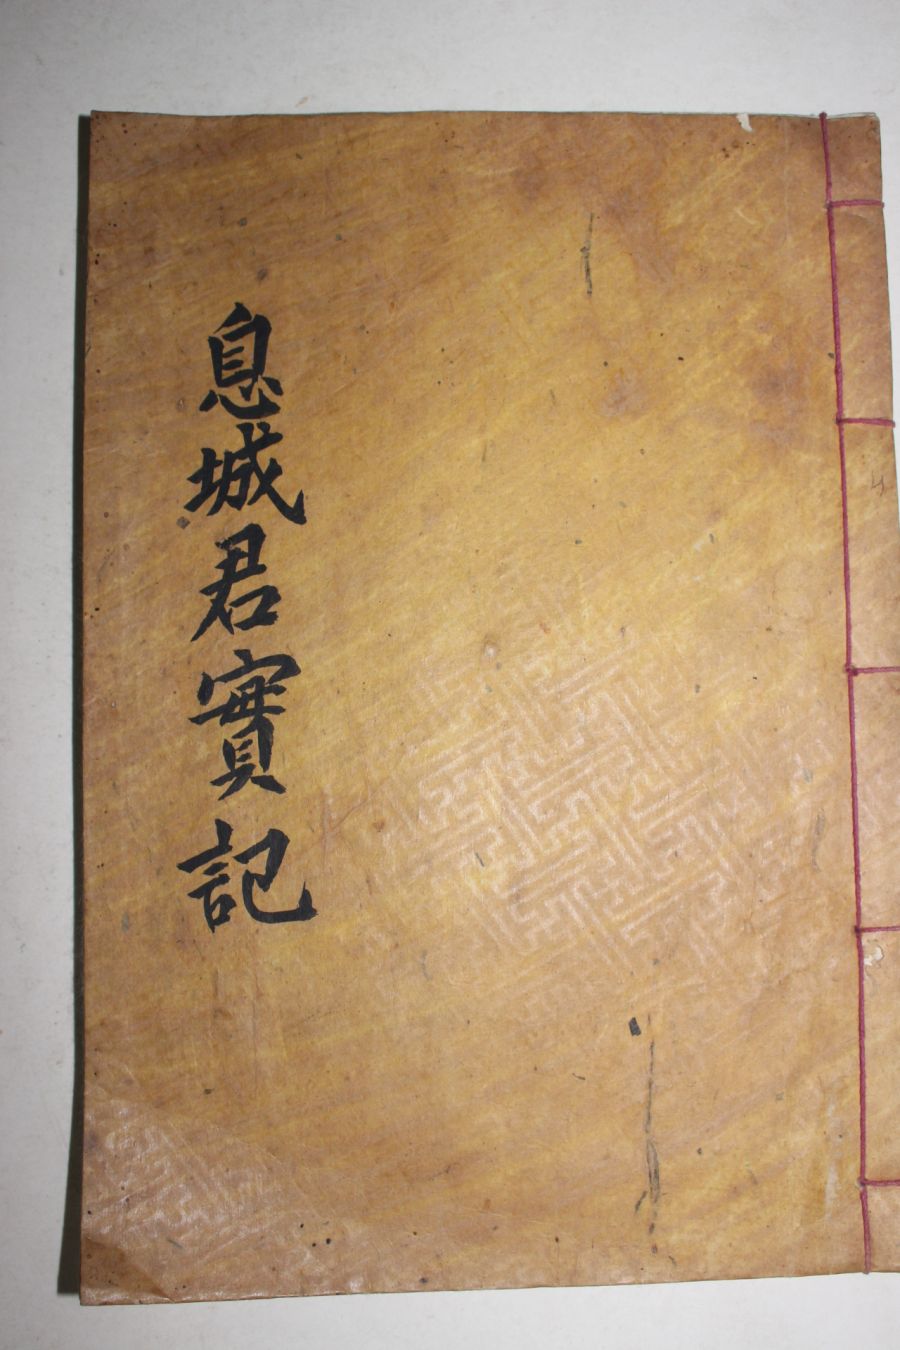 息城君實記